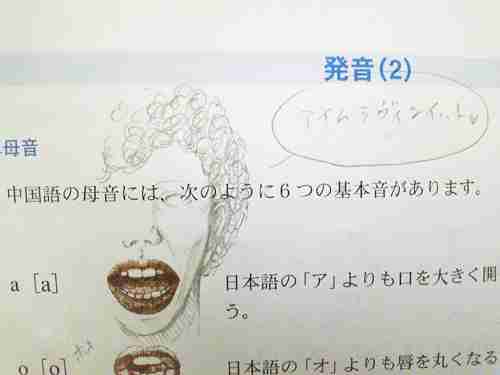 発音(2)
アイムラヴィンイット。
母音
中国語の母音には、次のように6つの基本音があります。
a [a]
日本語の「ア」よりも口を大きく開
う。
o [o]
日本語の「オ」よりも唇を丸くなる